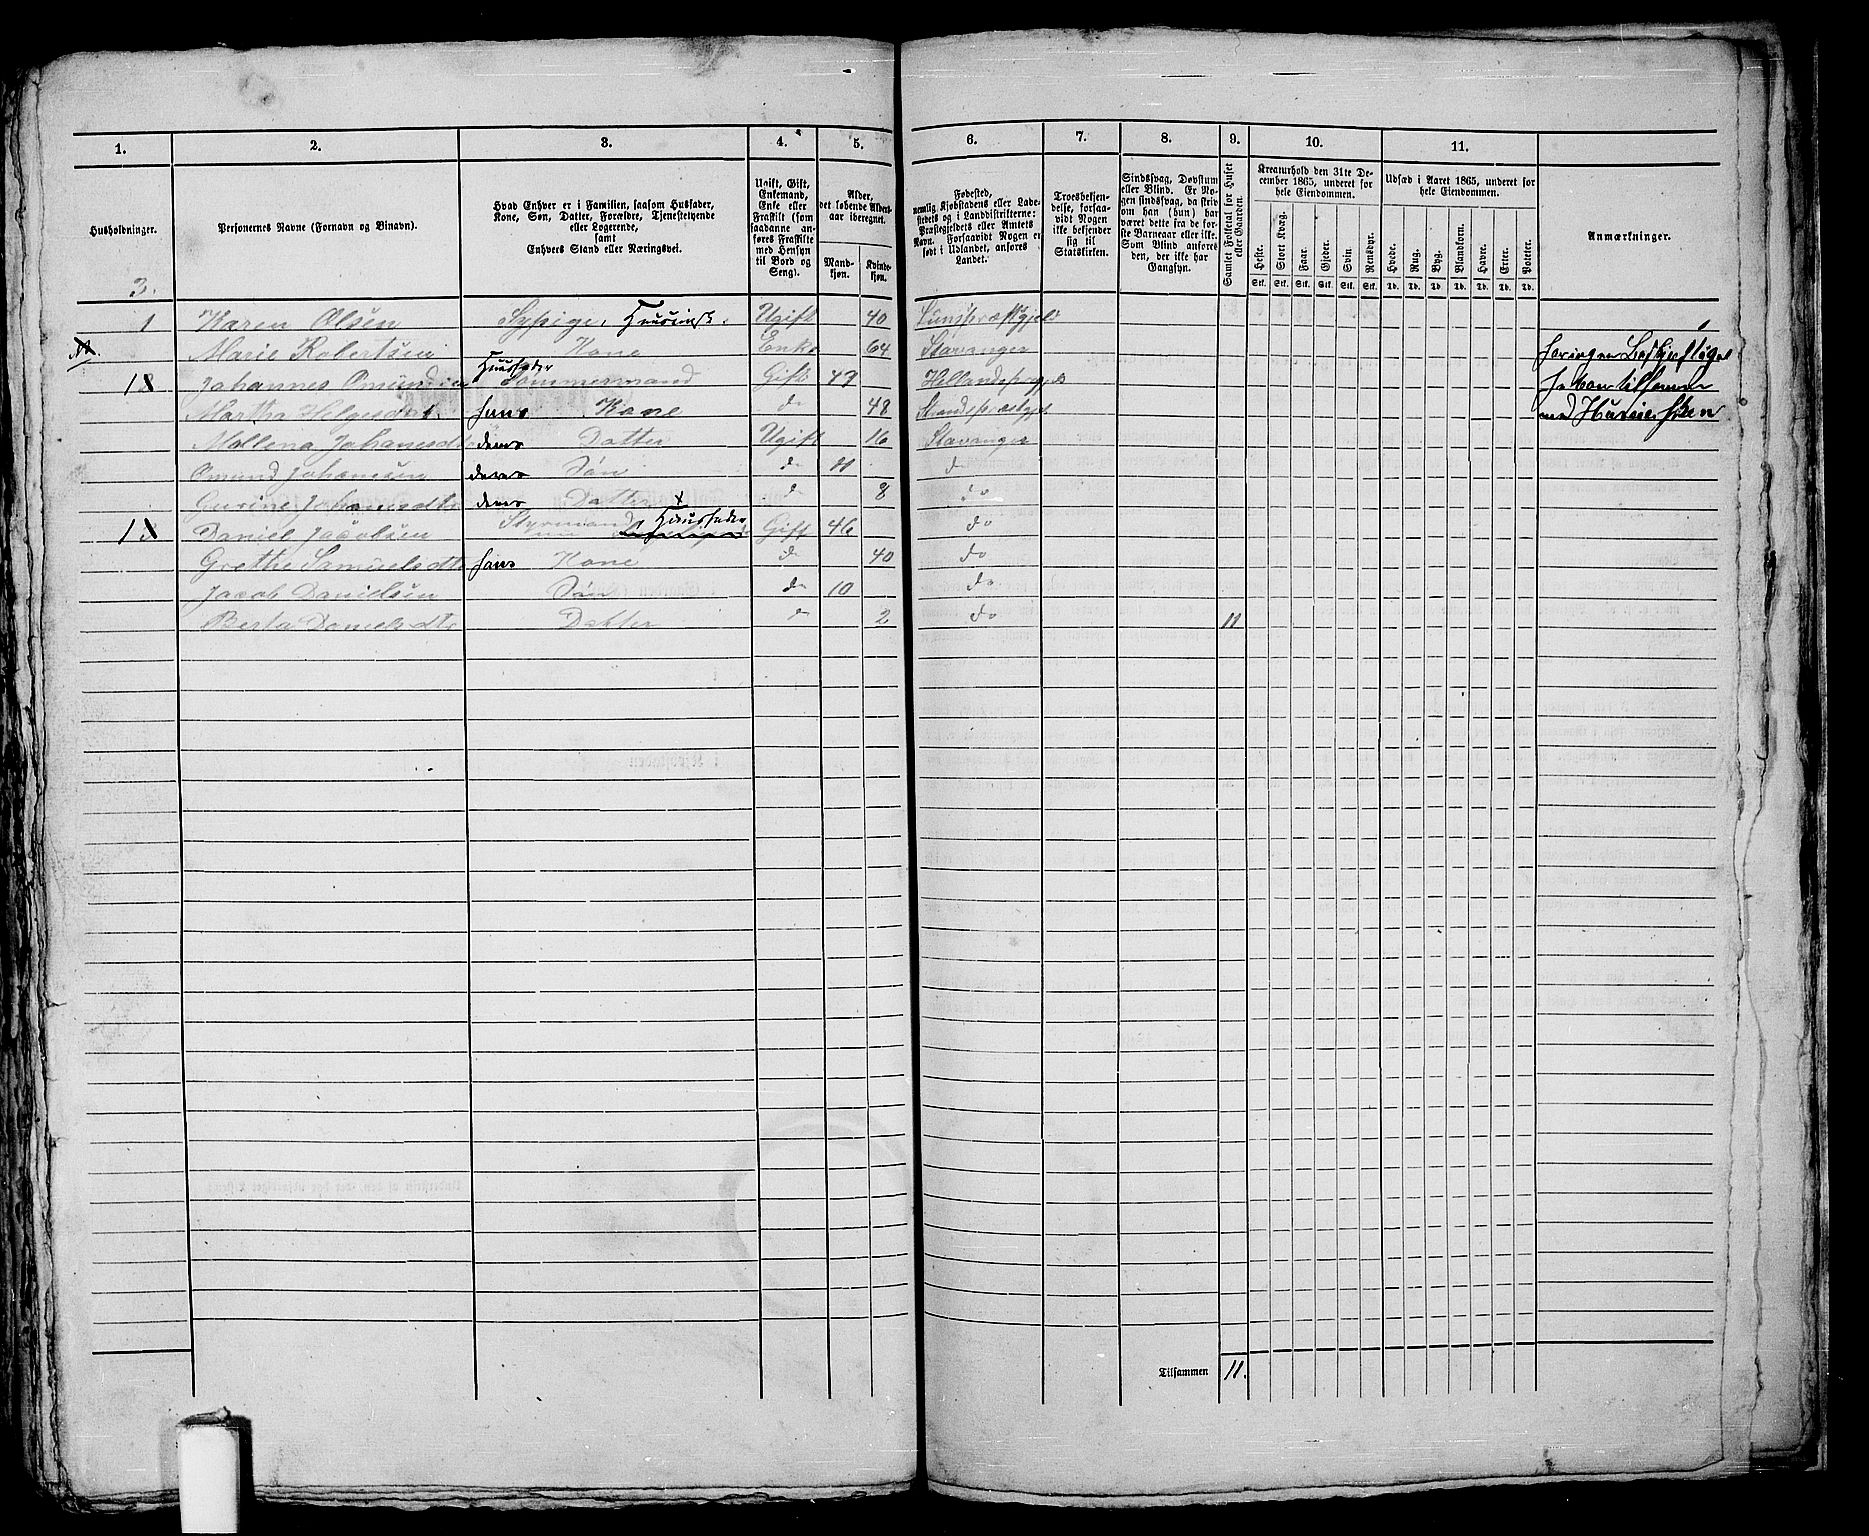 1. 2. 3. 4. 5. 6. 7. 8. 9. 10. 11.
Husholdninger.
Personernes Navne (Fornavn og Binavn).
Hvad Enhver er i Familien, saasom Husfader,
Kone, Søn, Datter, Forældre, Tjenestetyende
eller Logerende,
samt
Enhvers Stand eller Næringsvei.
Ugift, Gift,
Enkemand,
Enke eller
Fraskilt (som
saadanne an-
føres Fraskilte
med Hensyn
til Bord og
Seng).
Alder,
det løbende Alders-
aar iberegnet.
Mand-
kjøn.
Kvinde-
kjøn.
Fødested,
nemlig Kjøbstadens eller Lade-
stedets og i Landdistrikterne:
Præstegjeldets eller Amtets
Navn. Forsaavidt Nogen er
født i Udlandet, anføres
Landet.
Troesbekjen-
delse, forsaa-
vidt Nogen
ikke bekjender
sig til
Statskirken.
Sindssvag, Døvstum
eller Blind. Er No-
gen sindssvag, da skriv
om han (hun) har
været dette fra de før-
ste Barneaar eller ikke.
Som Blind anføres
den, der ikke har
Gangsyn.
Samlet Folketal for Huset
eller Gaarden.
Kreaturhold den 31te De-
cember 1865, underet for
hele Eiendommen.
Heste. Stort Kvæg. Faar. Gjeder. Svin. Rensdyr.
Stk. Stk. Stk. Stk. Stk. Stk.
Udsæd i Aaret 1865, underet for
hele Eiendommen.
Hvede. Rug. Byg. Blandkorn. Havre. Erter. Poteter.
Td. Td. Td. Td. Td. Td. Td.
Anmærkninger.
3.
1 Karen Olsen Sypige, Ugift 40
Marie Robertsen Kone Enke 64 Stavanger
Huusfader
1 Johannes Tømmermand Gift 49
Martha Helgesdat. hans Kone do 48
Mallena Johanesdtr deres Datter Ugift 16 Stavanger
Omund Johanesen deres Søn do 11 do
Gurine Johanesdtr deres Datter do 8 do
1 Daniel Jacobsen Styrmand, Huusfader Gift 46 do
Grethe Samuelsdtr hans Kone do 40 do
Jacob Danielsen Søn do 10 do
Berta Danielsdtr Datter do 2 do 11
Tilsammen 11.